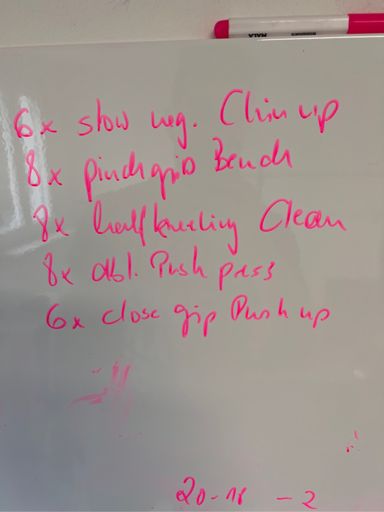 6x slow neg. Chin up
8x pinchgrip Bench
8x halfkneeling Clean
8x dbl. Push press
6x close gip Push up
20-18 - 2